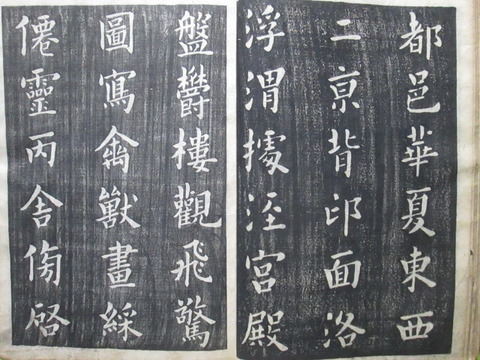 都邑華夏東西
二亰背邙面洛
浮渭據涇宮殿
盤欝樓觀飛驚
圖寫禽獸畫綵
僊靈丙舍傍啓